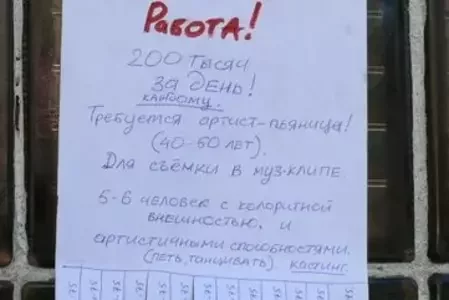 Работа!
200 тысяч
за день!
каждому.
Требуется артист-пьяница!
(40-60 лет).
Для съёмки в муз-клипе
5-6 человек с колоритной
внешностью, и
артистичными способностями.
(петь, танцевать) кастинг.